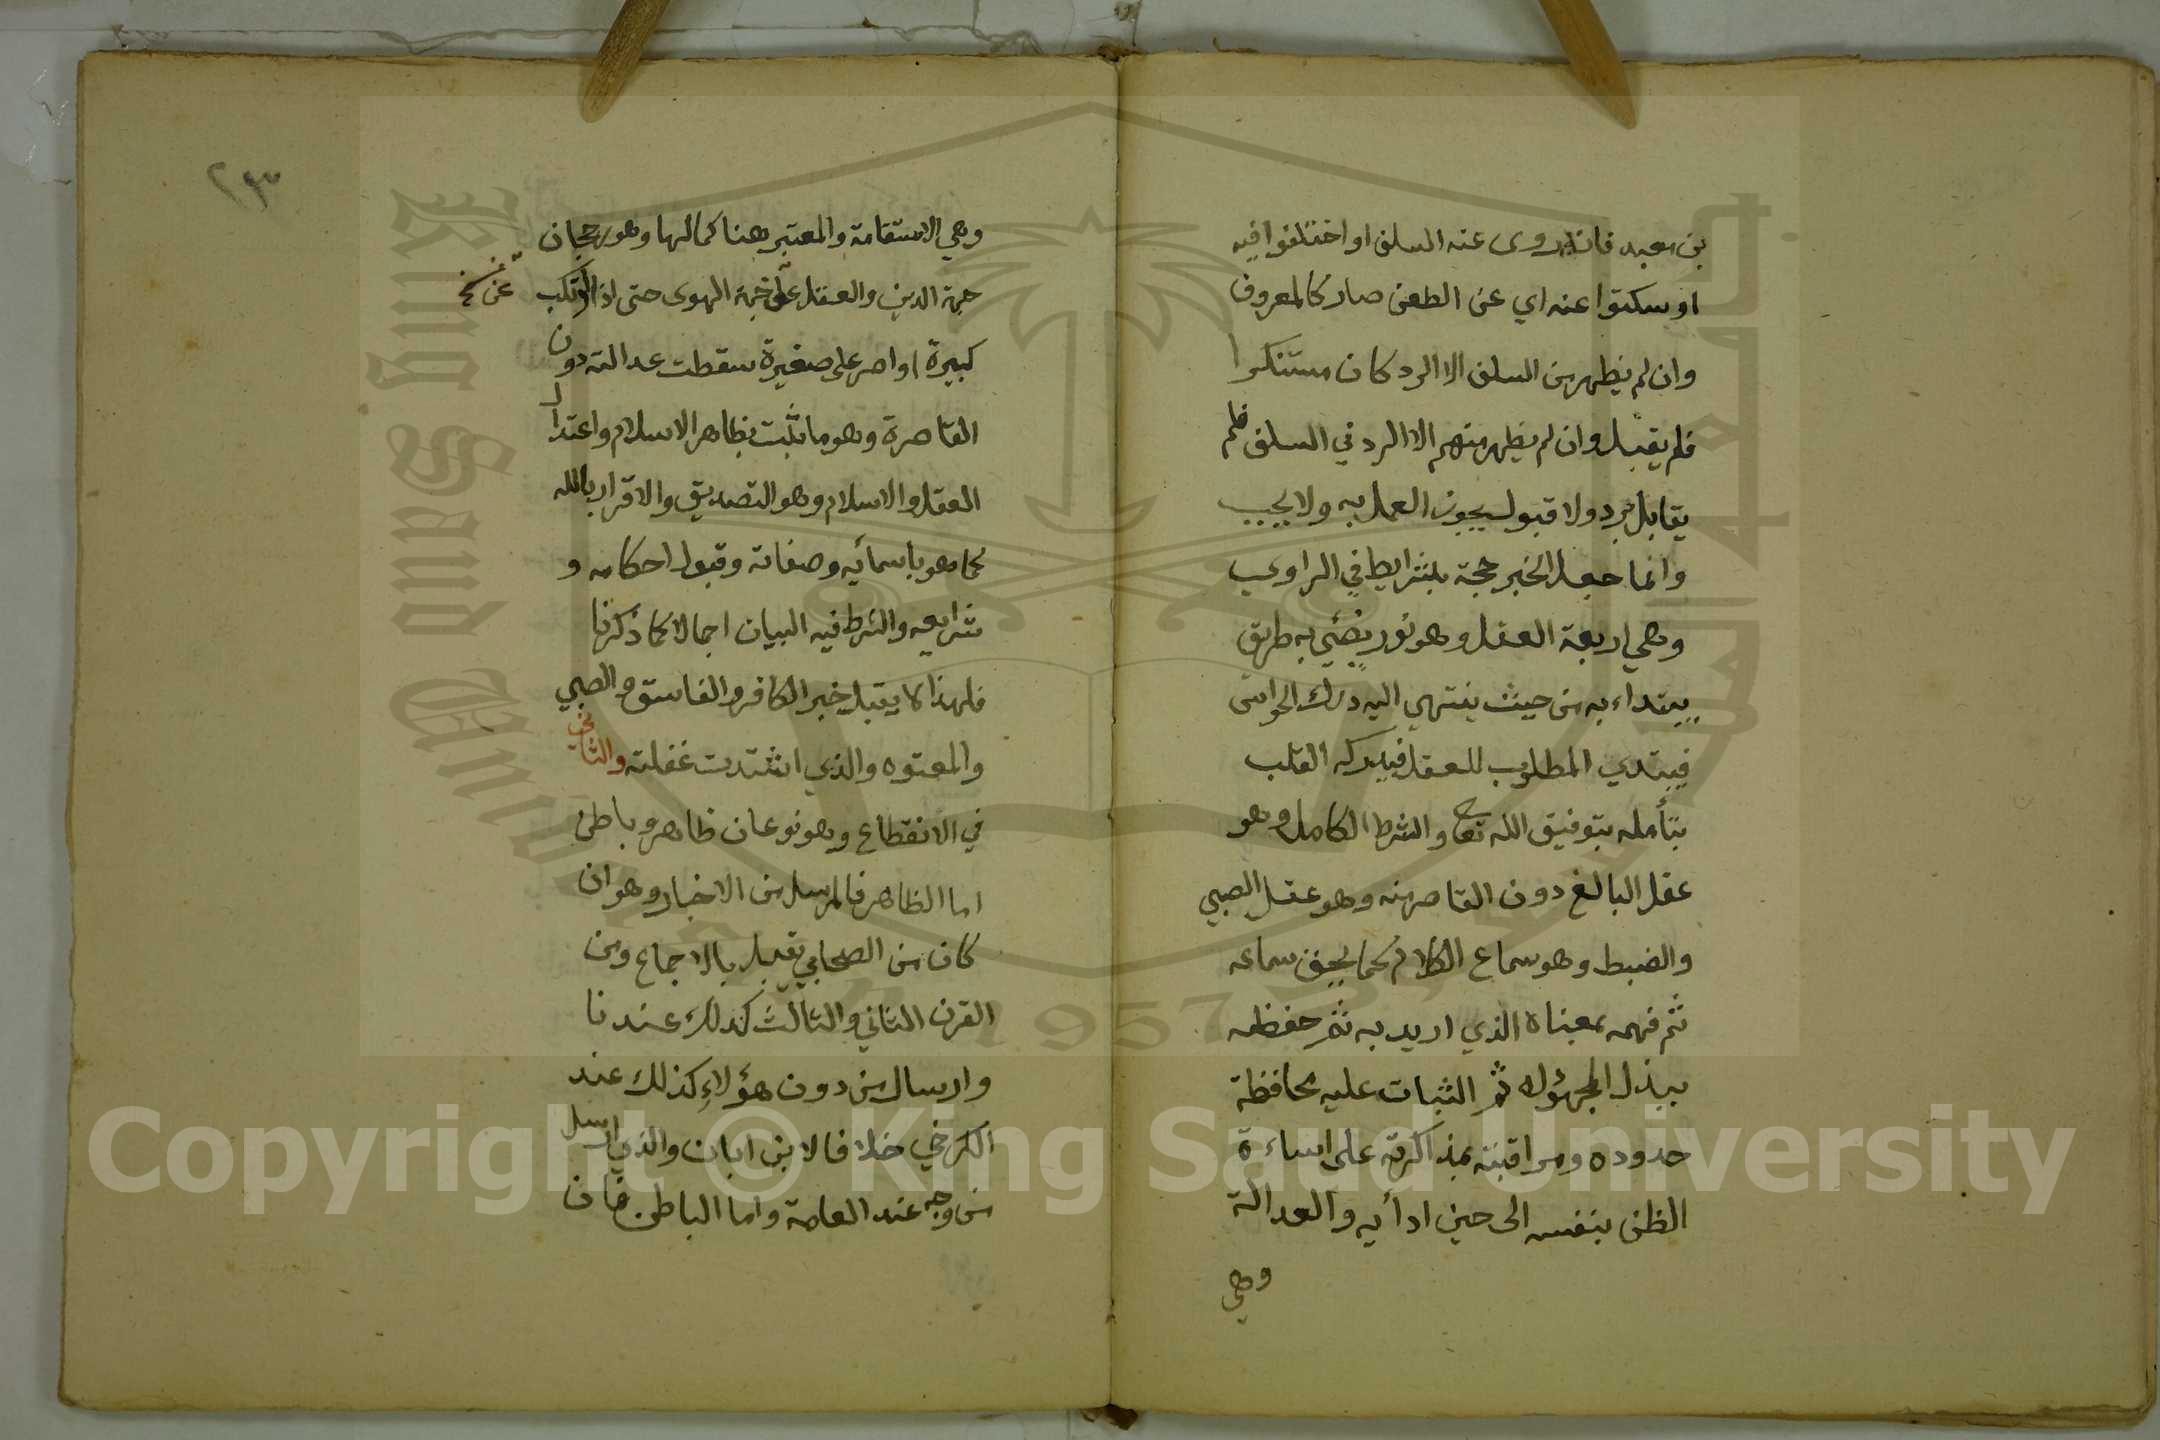 بن معبد فان روى عنه السلف او اختلفوا فيه
او سكتوا عنه اي عن الطعن صار كالمعروف
وان لم يظهر من السلف الا الرد كان مستنكرا
فلم يقبل وان لم يظهر منهم الا الرد في السلف فلم
يقابل برد ولا قبول يجوز العمل به ولا يجب
وانما جعل الخبر حجة بشرايط في الراوي
وهي اربعة العقل وهو نور يضئ به طريق
يبتداء به من حيث ينتهي اليه درك الحواس
فيبتدي المطلوب للعقل فيدركه القلب
بتأمله بتوفيق الله تعا والشرط الكامل وهو
عقل البالغ دون القاصر منه وهو عقل الصبي
والضبط وهو سماع الكلام كما يحق سماعه
ثم فهمه بمعناه الذي اريد به ثم حفظه
ببذل المجهود له ثم الثبات عليه محافظة
حدوده ومراقبته بمذاكرته على اساءة
الظن بنفسه الى حين ادائه والعدالة
وهي
٢٣
وهي الاستقامة والمعتبر هنا كمالها وهو رجحان
جهة الدين والعقل على جهة الهوى حتى اذا ارتكب
عن نخ
كبيرة او اصر على صغيرة سقطت عدالته دون
القاصرة وهو ما ثبت بظاهر الاسلام واعتدال
العقل والاسلام وهو التصديق والاقرار بالله
كما هو باسمائه وصفاته وقبول احكامه و
شرايعه والشرط فيه البيان اجمالا كما ذكرنا
فلهذا لا يقبل خبر الكافر والفاسق والصبي
والمعتوه والذي اشتدت غفلته والثاني
في الانقطاع وهو نوعان ظاهر وباطن
اما الظاهر فالمرسل من الاخبار وهو ان
كان من الصحابي يقبل بالاجماع ومن
القرن الثاني والثالث كذلك عندنا
وارسال من دون هؤلاء كذلك عند
الكرخي خلافا لابن ابان والذي ارسل
من وجه عند العامة واما الباطن فان
Copyright © King Saud University
King Saud University
1957